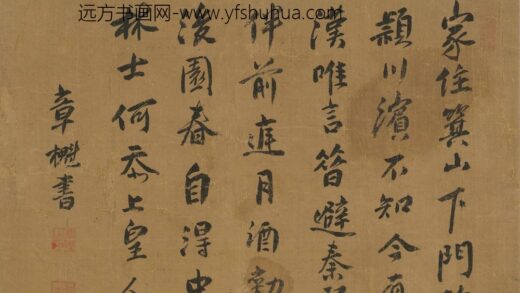 远方书画网-www.yfshuhua.com
家住箕山下門
潁川濱不知今有
漢唯言昔避秦
伴前庭月酒勸
後園春自得中
林士何忝上皇人
章書